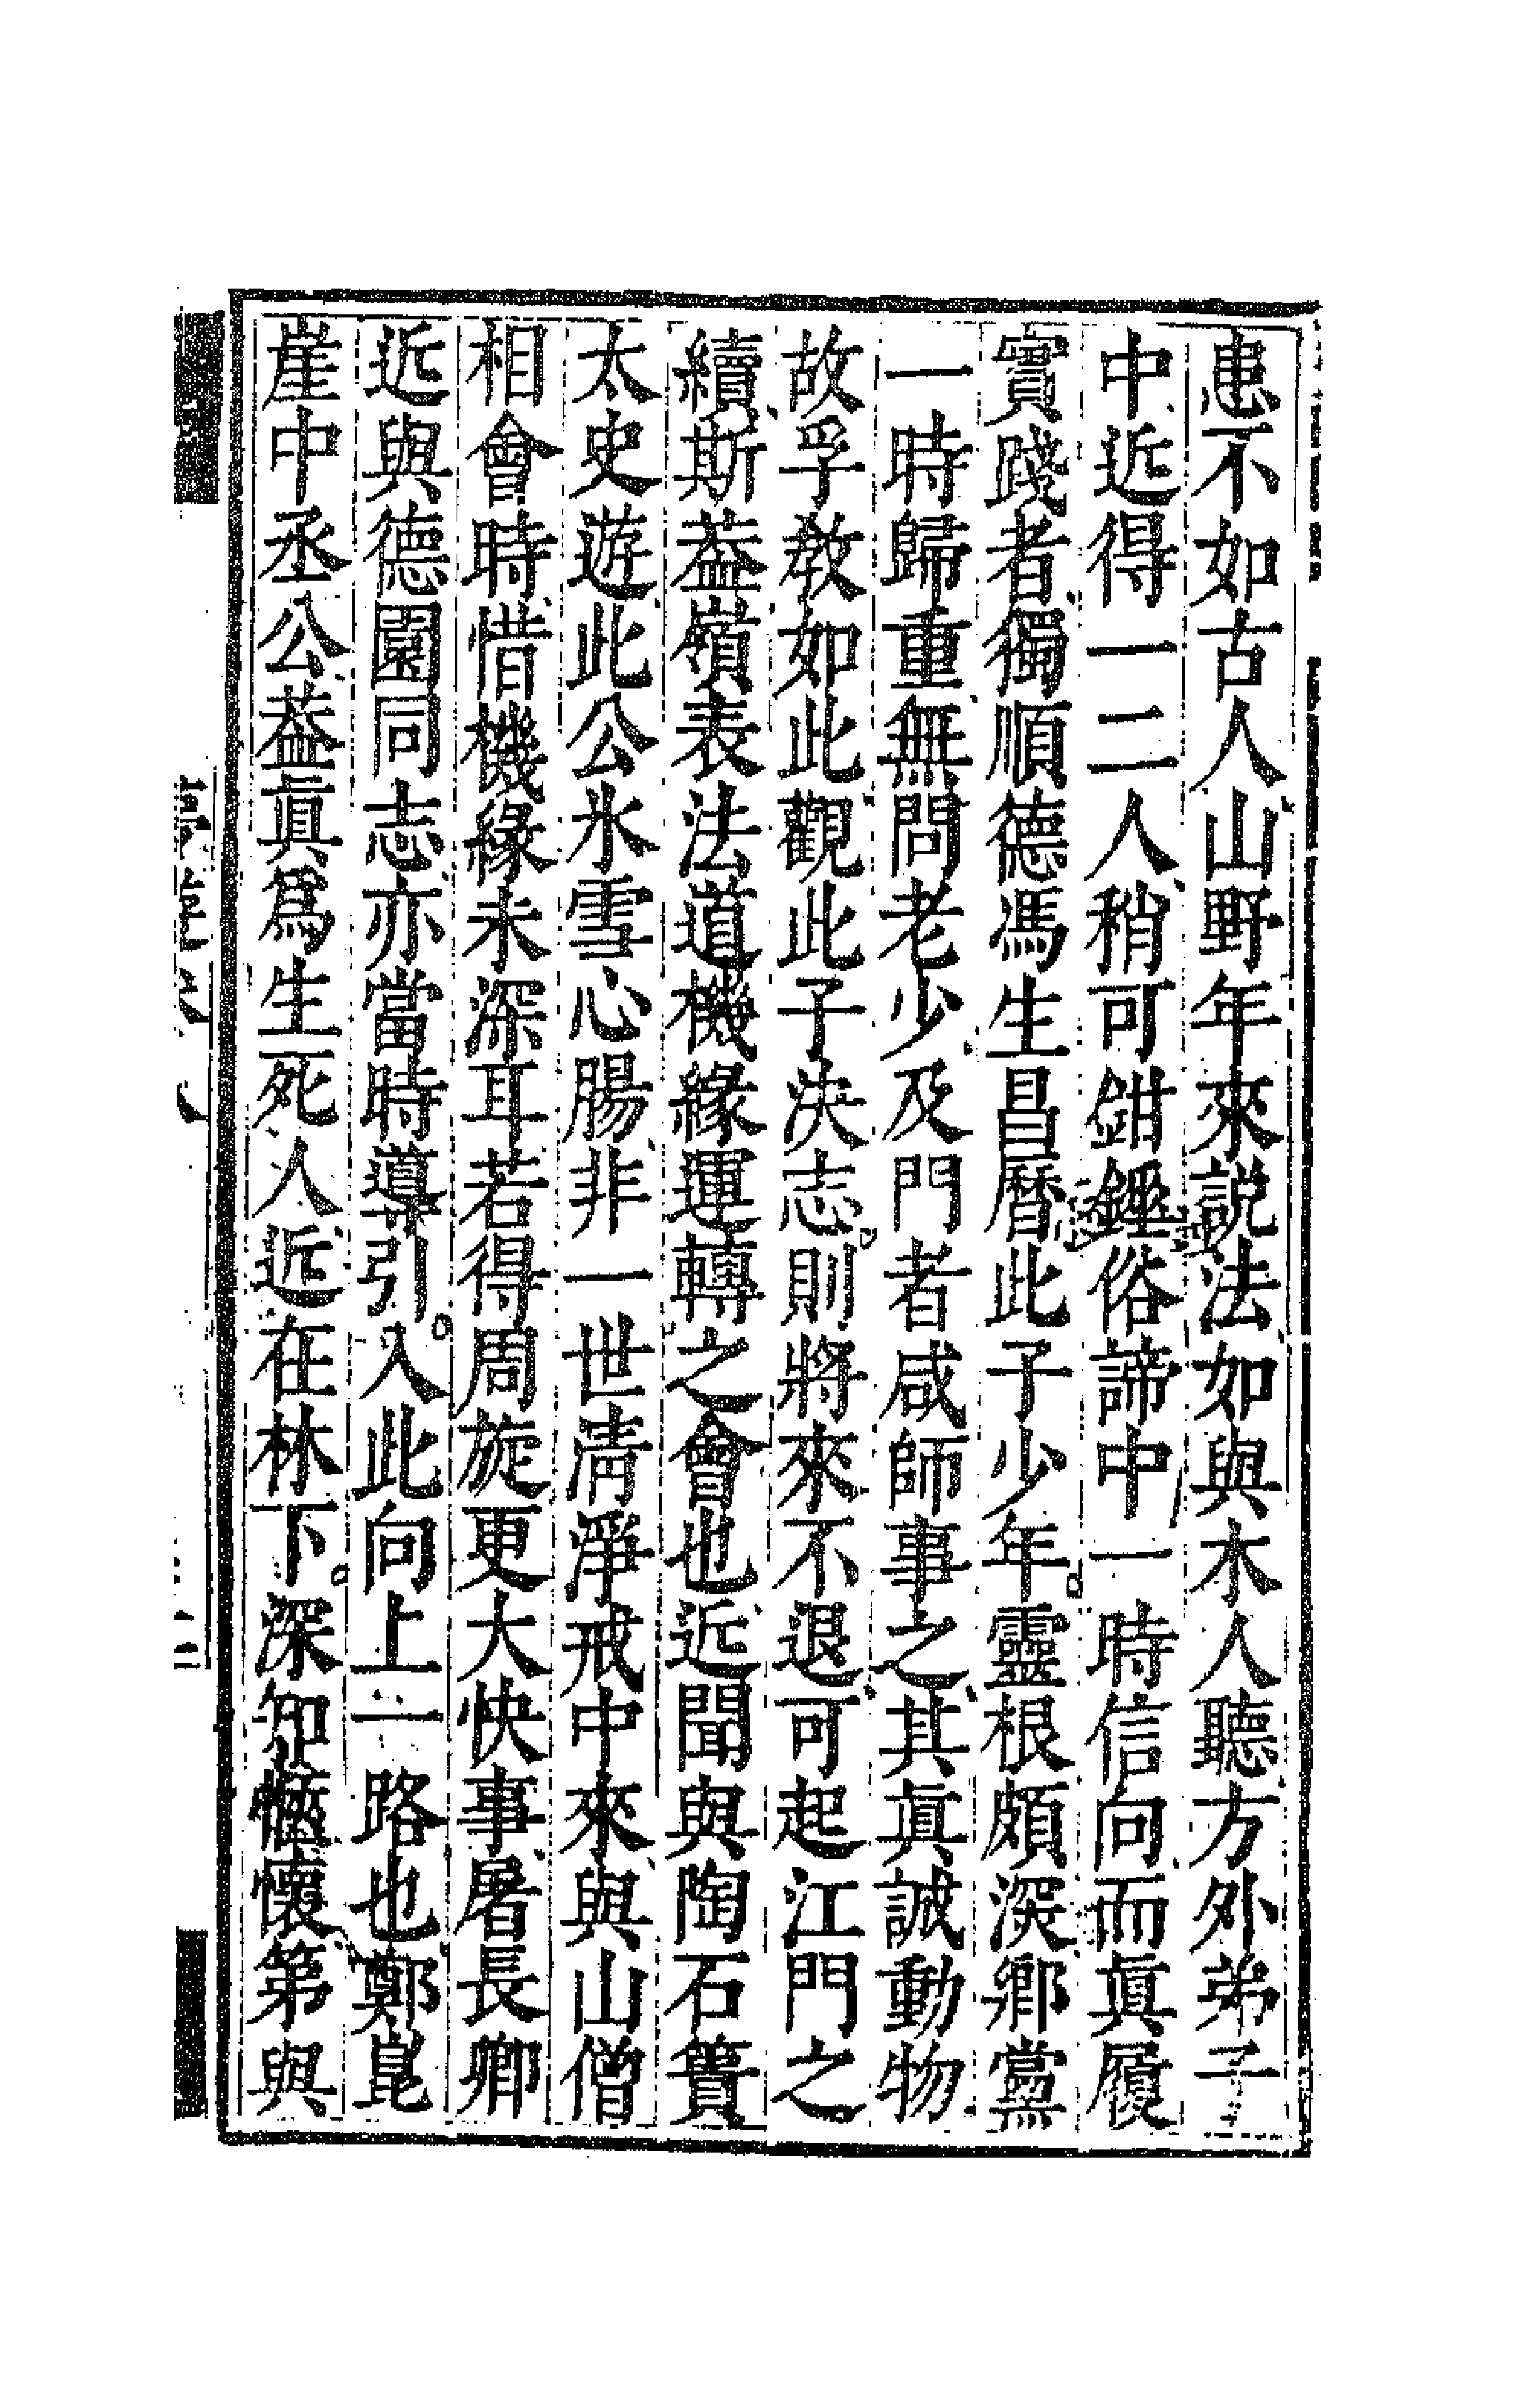 患不如古人山野年來説法如與木人聽方外弟子
中近得一二人稍可鉗錘俗諦中一時信向而眞履
實踐者獨順德馮生昌曆此子少年靈根頗深鄉黨
一時歸重無問老少及門者咸師事之其眞誠動物
故孚敎如此觀此子決志則將來不退可起江門之
續斯葢嶺表法道機緣運轉之會也近聞與陶石簣
太史遊此公氷雪心腸非一世淸淨戒中來與山僧
相會時惜機緣未深耳若得周旋更大快事屠長卿
近與德園同志亦當時導引入此向上一路也鄭崑
崖中丞公葢眞爲生死人近在林下深知懷第與